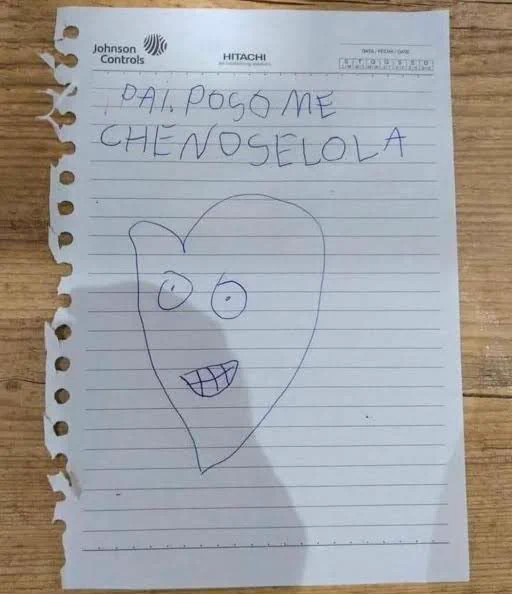 Johnson
Controls
HITACHI
DATA / FECHA / DATE
S T Q Q S S D
PAI. POSO ME
CHENOSELOLA